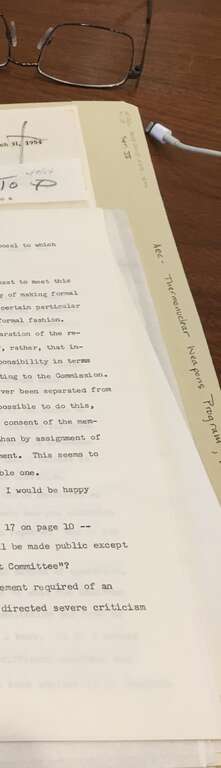 ch 31, 1954
To
4/54
Vol II
AEC. Thermonuclear Weapons Program,
posal to which
uest to meet this
g of making formal
certain particular
formal fashion.
paration of the re-
, rather, that in-
ponsibility in terms
ting to the Commission.
ver been separated from
possible to do this,
consent of the mem-
than by assignment of
ment. This seems to
ble one.
I would be happy
17 on page 10 --
ll be made public except
t Committee"?
ement required of an
directed severe criticism